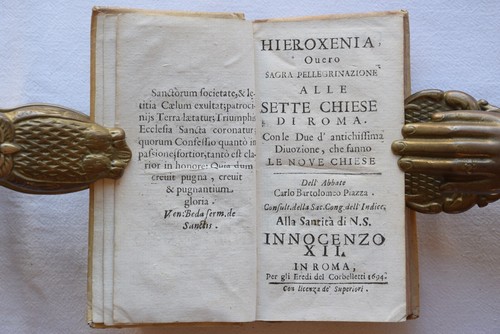 Sanctorum societate, & læ-
titia Cælum exultat; patroci-
nijs Terra lætatur; Triumphis
Ecclesia Sancta coronatur;
quorum Confessio quantò in
passione fortior, tantò est cla-
rior in honore: Quia dum
crevit pugna, crevit
& pugnantium
gloria.
Ven: Beda serm. de
Sanctis.
HIEROXENIA,
Overo
SAGRA PELLEGRINAZIONE
ALLE
SETTE CHIESE
DI ROMA.
Con le Due d'antichissima
Divozione, che fanno
LE NOVE CHIESE
Dell' Abbate
Carlo Bartolomeo Piazza.
Consult. della Sac. Cong. dell' Indice.
Alla Santità di N.S.
INNOCENZO
XII.
IN ROMA,
Per gli Eredi del Corbelletti 1694.
Con licenza de' Superiori.